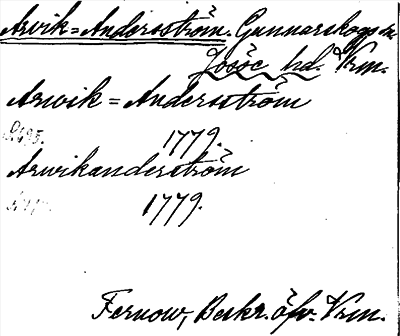 Arvik=Andersström. Gunnarskogs sn
Jösse hd. Vrm.
Arwik=Andersström
1779.
Arwikanderström
1779.
Fernow, Beskr. öfv. Vrm.